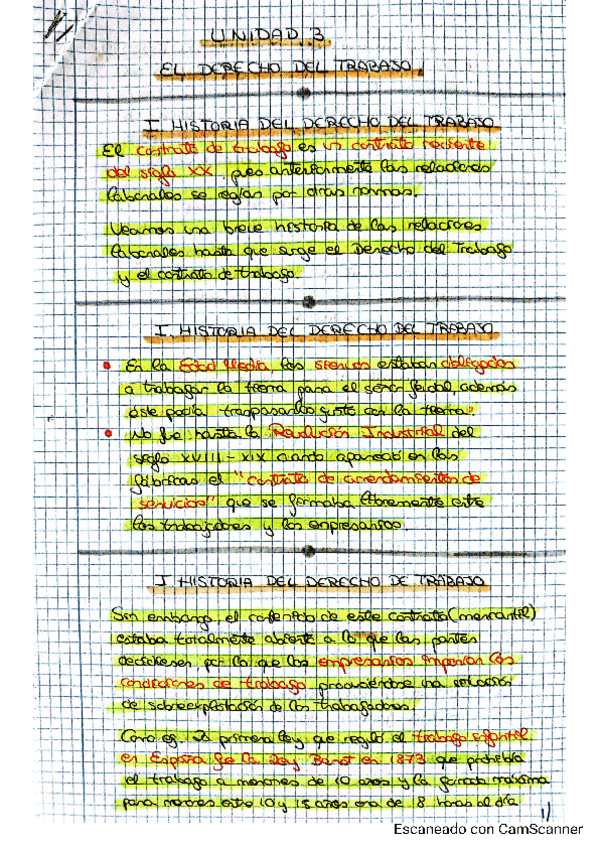 1/
UNIDAD 3
EL DERECHO DEL TRABAJO
I HISTORIA DEL DERECHO DEL TRABAJO
El contrato de trabajo es un contrato reciente
del siglo XX, pues anteriormente las relaciones
laborales se regían por otras normas.
Veamos una breve historia de las relaciones
laborales hasta que surge el Derecho del Trabajo
y el contrato de trabajo.
I. HISTORIA DEL DERECHO DEL TRABAJO
• En la Edad Media, los siervos estaban obligados
a trabajar la tierra para el señor feudal, además
este podía traspasarlos junto con la tierra.
• No fue hasta la Revolución Industrial del
siglo XVIII - XIX cuando apareció en las
fábricas el "contrato de arrendamientos de
servicios" que se firmaba libremente entre
los trabajadores y los empresarios.
I HISTORIA DEL DERECHO DE TRABAJO
Sin embargo, el contenido de este contrato (mercantil)
estaba totalmente abierto a lo que las partes
decidiesen, por lo que los empresarios imponían las
condiciones de trabajo produciéndose una situación
de sobreexplotación de los trabajadores.
Como ej: La primera ley que reguló el trabajo infantil
en España fue la Ley Benot en 1873 que prohibía
el trabajo a menores de 10 años y la jornada máxima
para menores entre 10 y 15 años era de 8 horas al día
1/
Escaneado con CamScanner